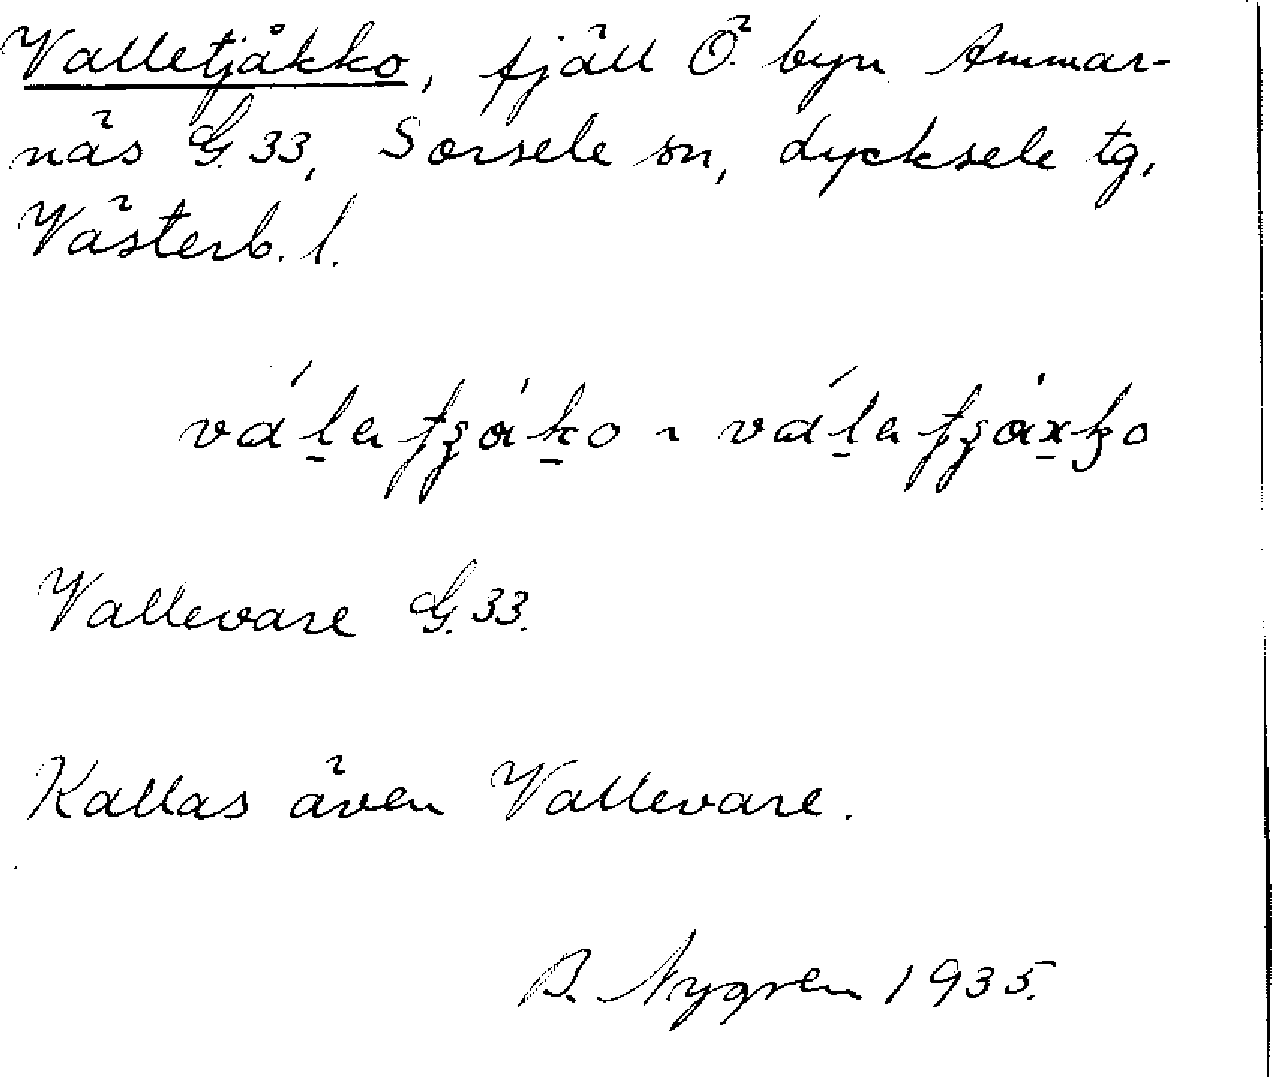 Valletjåkko, fjäll Ö. byn Ammar-
näs G. 33, Sorsele sn, Lycksele tg,
Västerb. l.
Vallevare G. 33.
Kallas även Vallevare.
B. Nygren 1935.